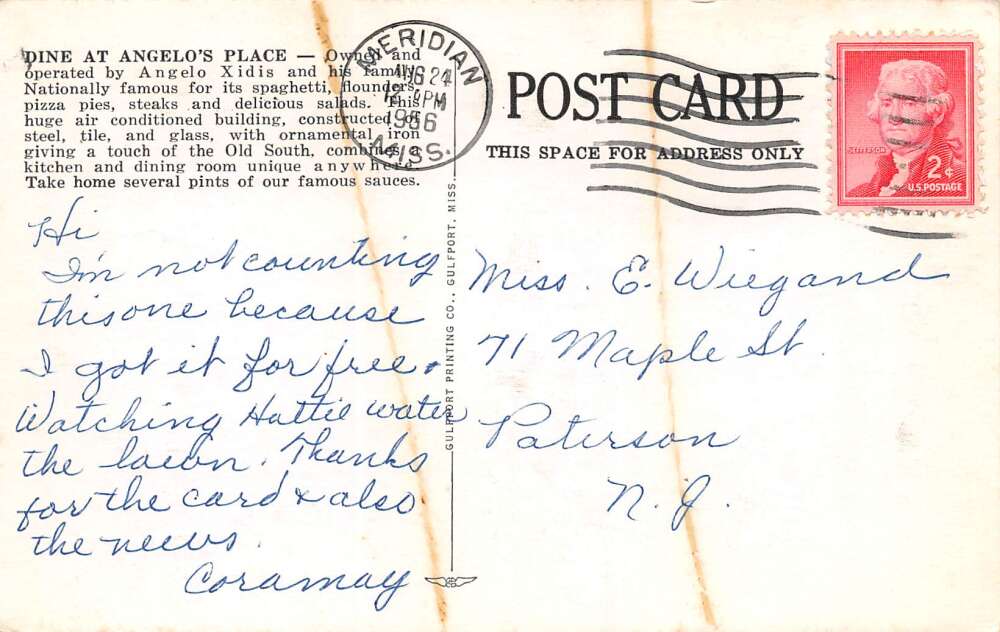 DINE AT ANGELO'S PLACE — Owned and
operated by Angelo Xidis and his family.
Nationally famous for its spaghetti, flounders,
pizza pies, steaks and delicious salads. This
huge air conditioned building, constructed of
steel, tile, and glass, with ornamental iron
giving a touch of the Old South, combines a
kitchen and dining room unique anywhere.
Take home several pints of our famous sauces.
MERIDIAN
AUG 24
PM
1956
MISS.
POST CARD
THIS SPACE FOR ADDRESS ONLY
JEFFERSON
2¢
U.S. POSTAGE
Hi
I'm not counting
this one because
I got it for free.
Watching Hattie water
the lawn. Thanks
for the card & also
the news.
Coramay
GULFPORT PRINTING CO., GULFPORT, MISS.
Miss. E. Wiegand
71 Maple St.
Paterson
N. J.